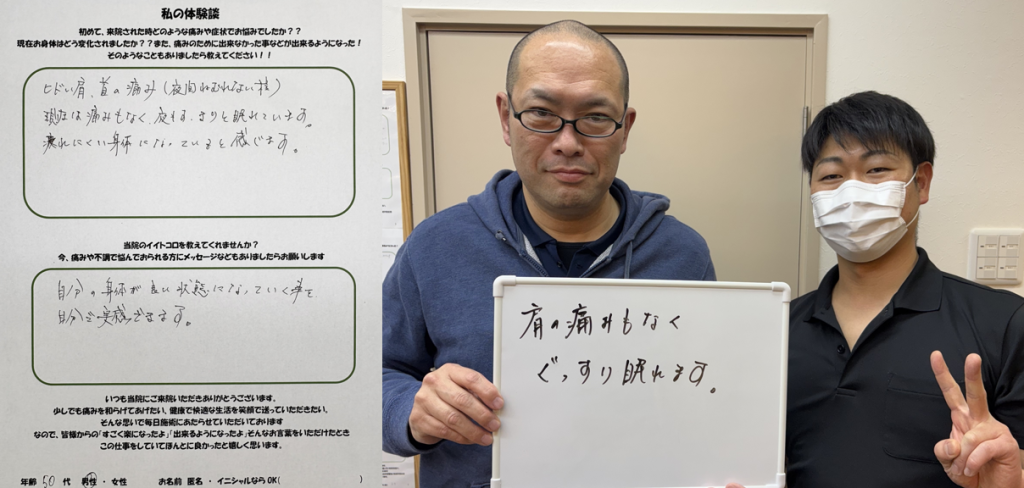 私の体験談
初めて、来院された時どのような痛みや症状でお悩みでしたか？？
現在お身体はどう変化されましたか？？また、痛みのために出来なかった事などが出来るようになった！
そのようなこともありましたら教えてください！！
ヒドい肩、首の痛み（夜間ねむれない程）
現在は痛みもなく、夜もすっきりと眠れています。
疲れにくい身体になっていると感じます。
当院のイイトコロを教えてくれませんか？
今、痛みや不調で悩んでおられる方にメッセージなどもありましたらお願いします
自分の身体が良い状態になっていく事を
自分で実感できます。
いつも当院にご来院いただきありがとうございます。
少しでも痛みを和らげてあげたい、健康で快適な生活を笑顔で送っていただきたい、
そんな思いで毎日施術にあたらせていただいております
なので、皆様からの「すごく楽になったよ」「出来るようになったよ」そんなお言葉をいただけたとき
この仕事をしていてほんとに良かったと嬉しく思います。
年齢 50 代 男性・女性 お名前 匿名・イニシャルならOK( )
肩の痛みもなく
ぐっすり眠れます。